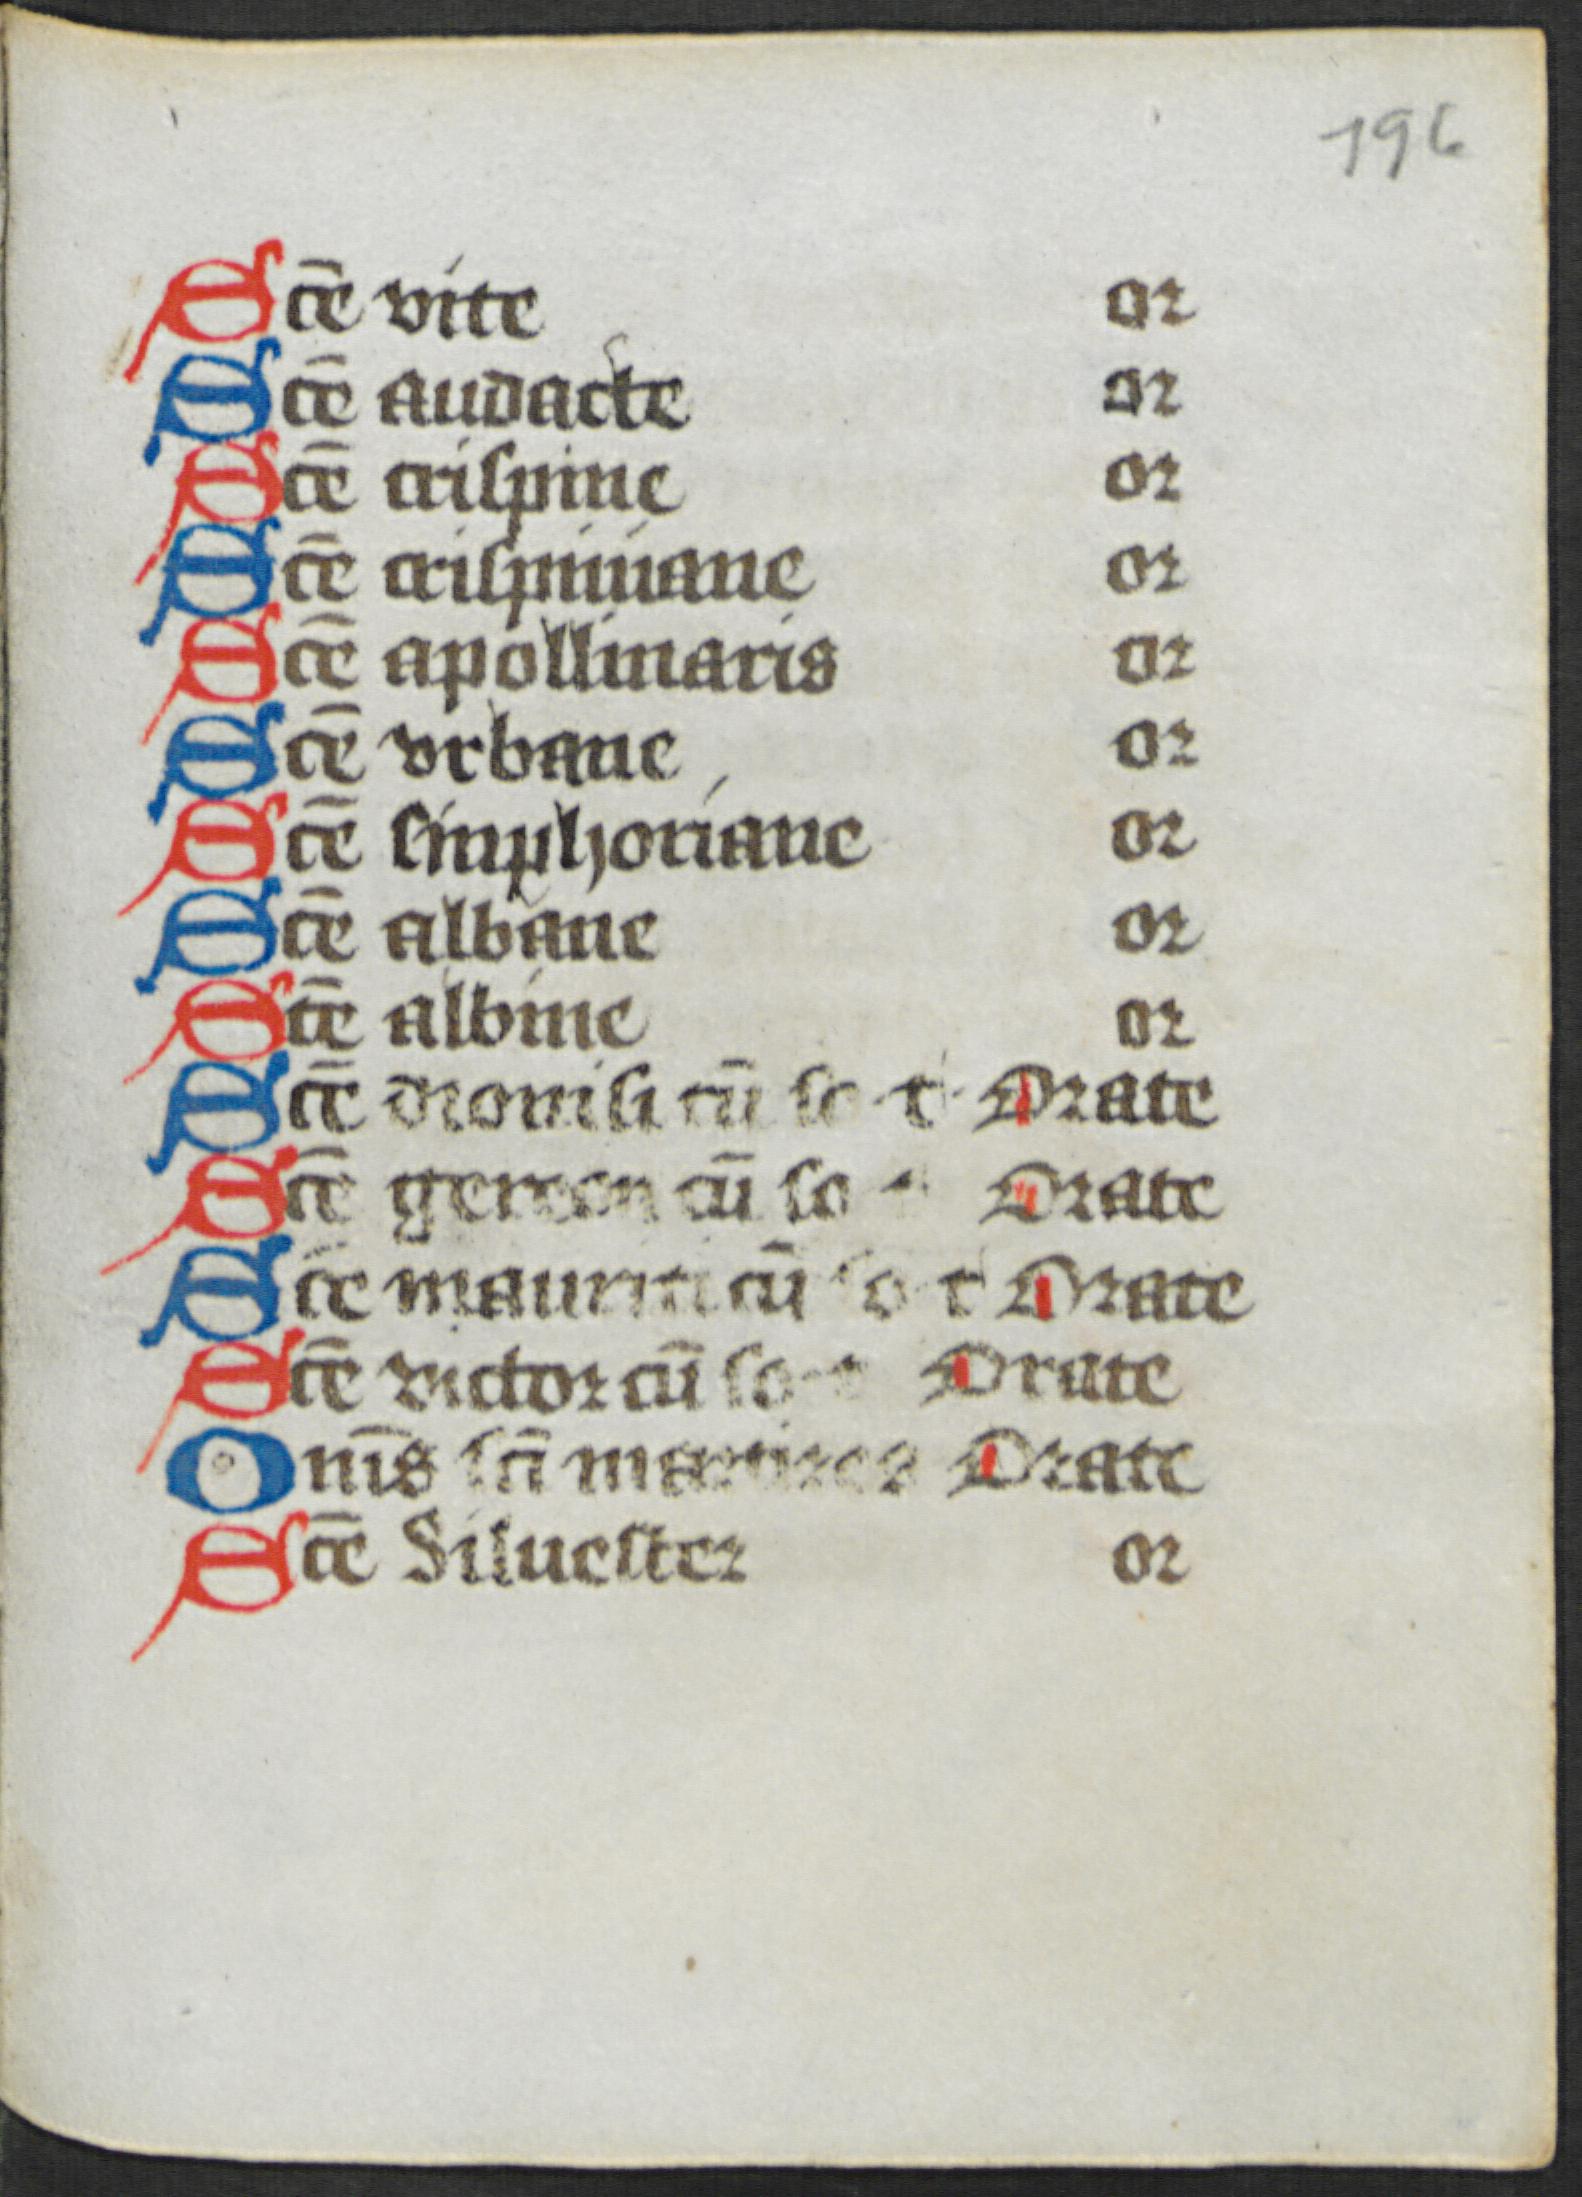 196
Scē vite or
Scē audacte or
Scē crispine or
Scē crispiniane or
Scē apollinaris or
Scē vrbane or
Scē simphoriane or
Scē albane or
Scē albine or
Scē dionisi cū so t Orate
Scē gereon cū so Orate
Scē mauriti cū so t Orate
Scē victor cū so Orate
Om̄s sc̄i martires Orate
Scē Siluester or